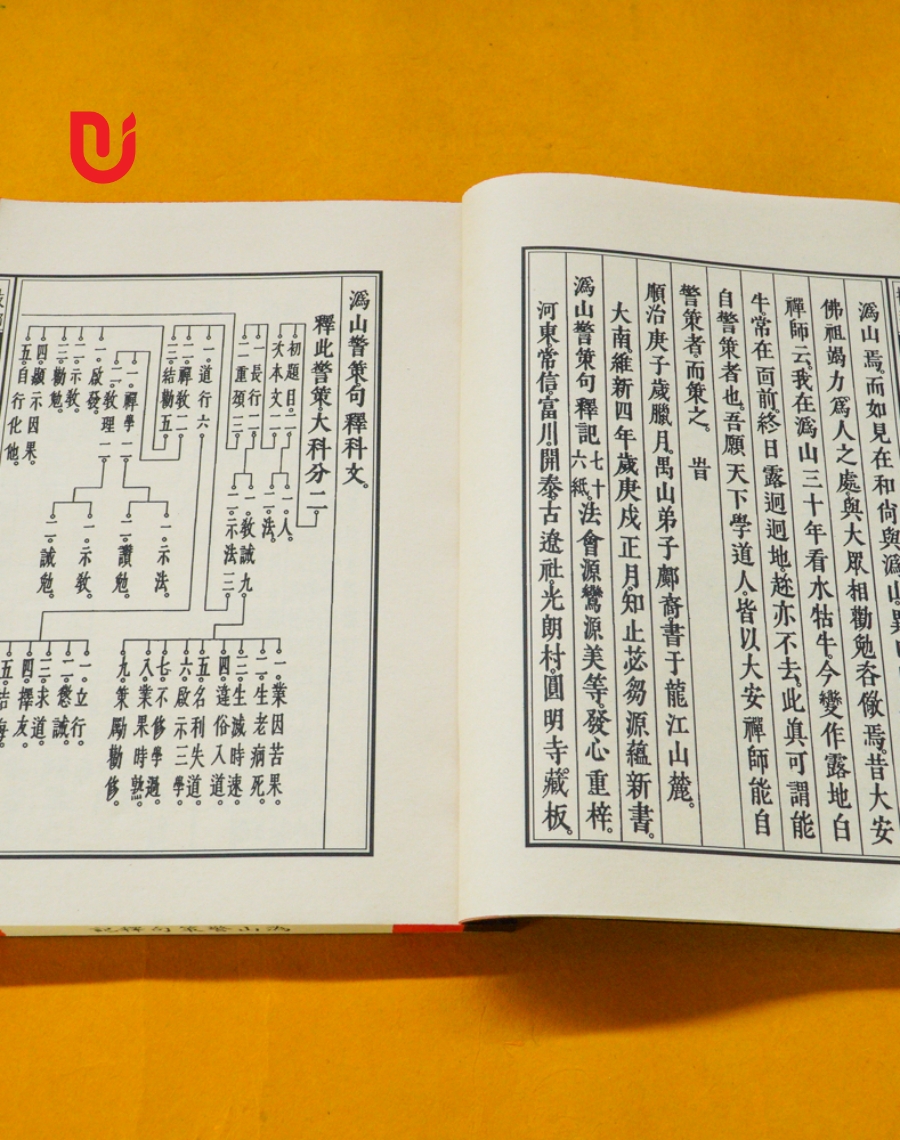 潙山焉。而如見在和尙與潙山。
佛祖竭力爲人之處。與大眾相勸勉咨儆焉。昔大安
禪師云。我在潙山三十年看水牯牛。今變作露地白
牛。常在面前。終日露迥迥地。趂亦不去。此眞可謂能
自警策者也。吾願天下學道人。皆以大安禪師能自
警策者。而策之。旹
順治庚子歲臘月。禺山弟子鄺裔書于龍江山麓。
大南維新四年歲庚戌正月。知止苾芻源蘊新書。
潙山警策句釋記七十六紙。法會源鸞源美等。發心重梓。
河東常信。富川。開泰。古遼社。光朗村。圓明寺藏板。
潙山警策句釋科文。
釋此警策。大科分二。
初題目二
一。人。
二。法。
次本文二
一長行二
一。教誡九。
二。示法三。
二重頌三
一。業因苦果。
二。生老病死。
三。生滅時速。
四。違俗入道。
五。名利失道。
六。啟示三學。
七。不修學過。
八。業果時熟。
九。策勵勸修。
一。道行六
二。禪教二
三。結勸五
一。禪學二
二。教理二
一。示法。
二。讚勉。
一。示教。
二。誡勉。
一。啟發。
二。示教。
三。勸勉。
四。顯示因果。
五。自行化他。
一。立行。
二。懲誡。
三。求道。
四。擇友。
五。結
潙山警策句釋記